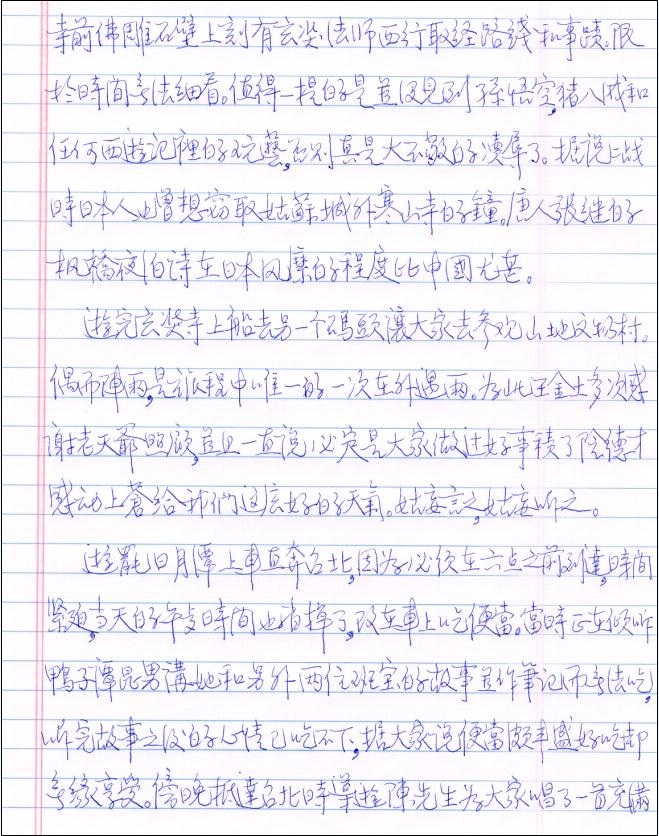 寺前佛雕石壁上刻有玄奘法师西行取经路线和事蹟。限
於時間無法細看。值得一提的是並没見到孫悟空,猪八戒和
任何西遊记裡的玩藝,否则真是大不敬的凟辱了。据说二战
時日本人也曾想窃取姑蘇城外寒山寺的鐘。唐人張继的
枫橋夜泊诗在日本风靡的程度比中國尤甚。
遊完玄奘寺上船去另一个碼頭讓大家去参观山地文物村。
偶而陣雨,是旅程中唯一的一次在外遇雨。為此汪金土多次感
謝老天爺照顾,並且一直说,必定是大家做过好事積了陰德才
感动上蒼给我們这広好的天氣。姑妄言之,姑妄听之。
遊罷日月潭上車直奔台北,因為必须在六点之前到達,時間
緊廹,当天的午餐時間也省掉了,改在車上吃便當。當時正在倾听
鴨子潭昆男講她和另外两位班宝的故事並作筆记而無法吃,
听完故事之後的心情已吃不下,据大家说便當頗丰盛好吃却
無缘享受。傍晚抵達台北時導遊陳先生為大家唱了一首充滿